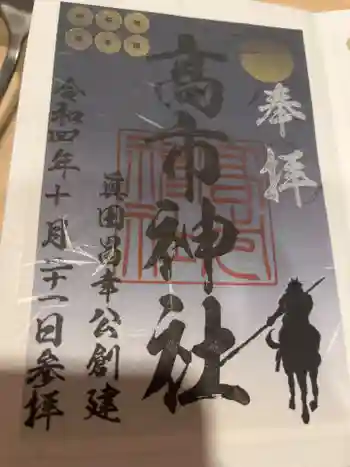 奉拝
高市神社
眞田昌幸公創建
令和四年十月二十一日参拝